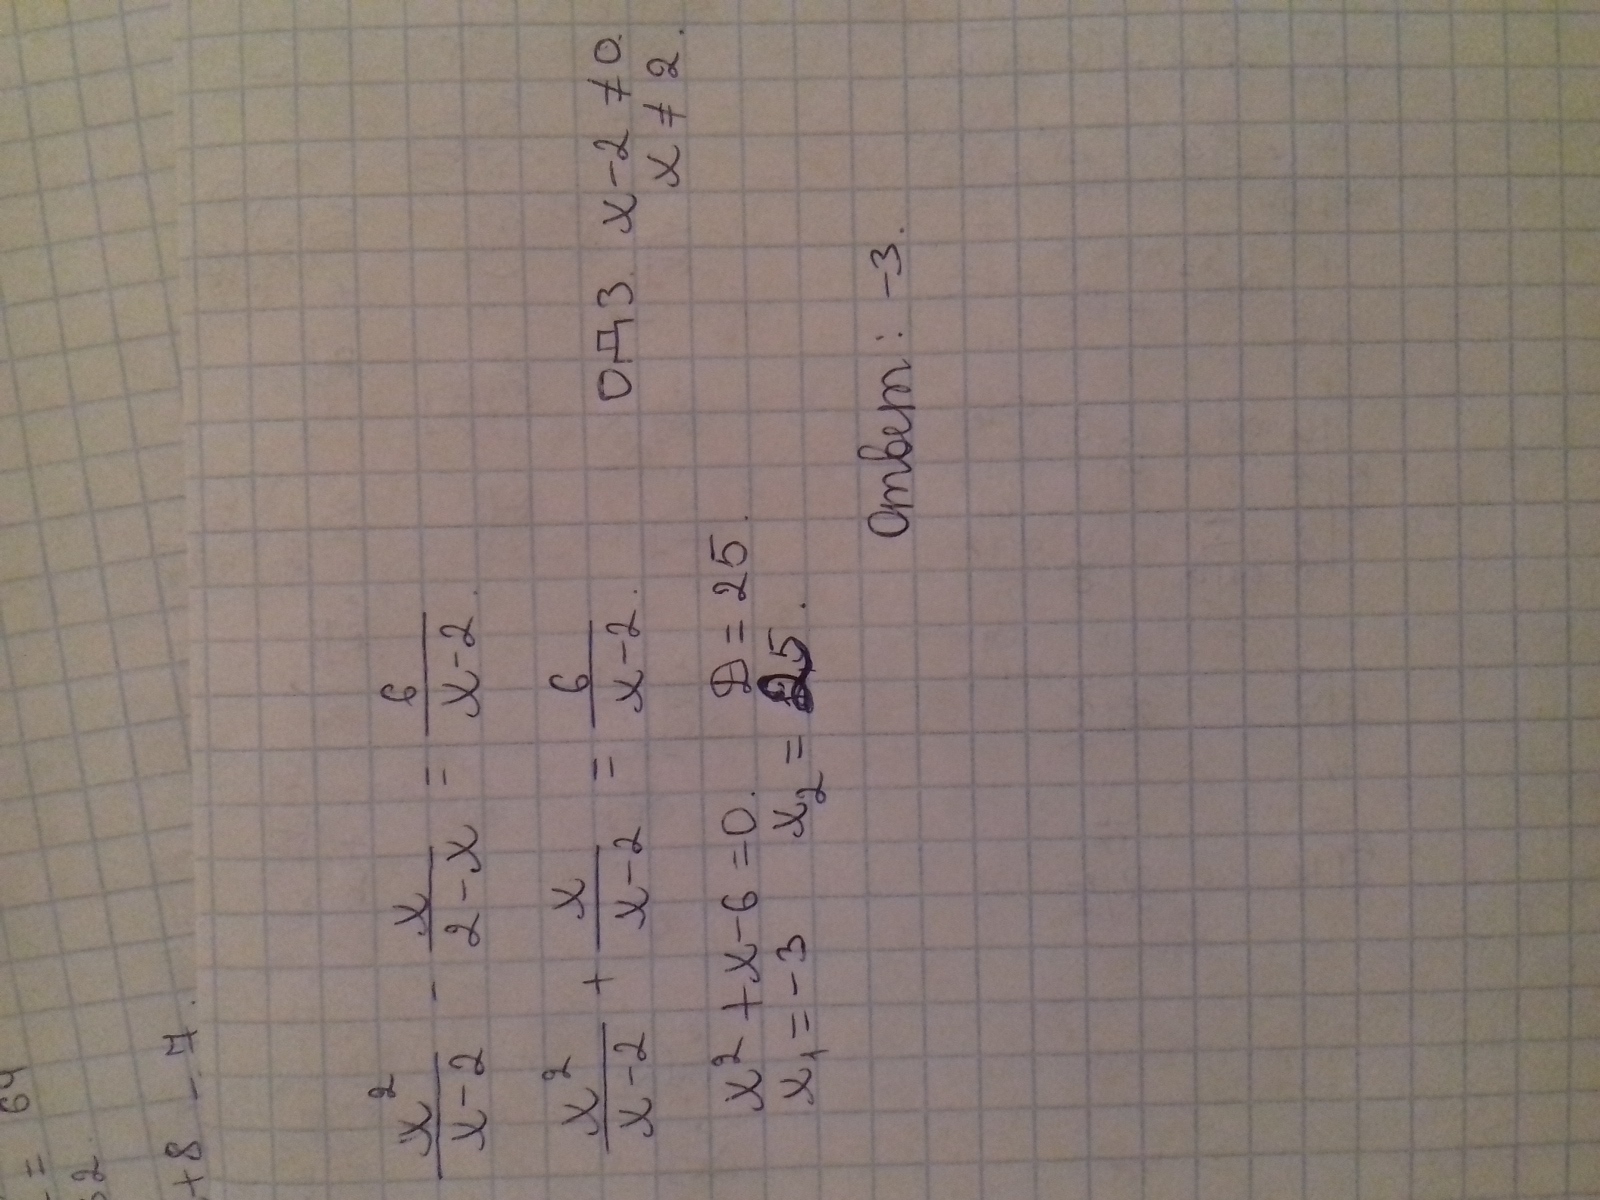 = 64
32
+8 - 7.
x²/(x-2) - x/(2-x) = 6/(x-2).
x²/(x-2) + x/(x-2) = 6/(x-2).
ОДЗ. x-2 ≠0.
x ≠ 2.
x²+x-6=0. D=25.
x₁=-3 x₂= .
Ответ: -3.